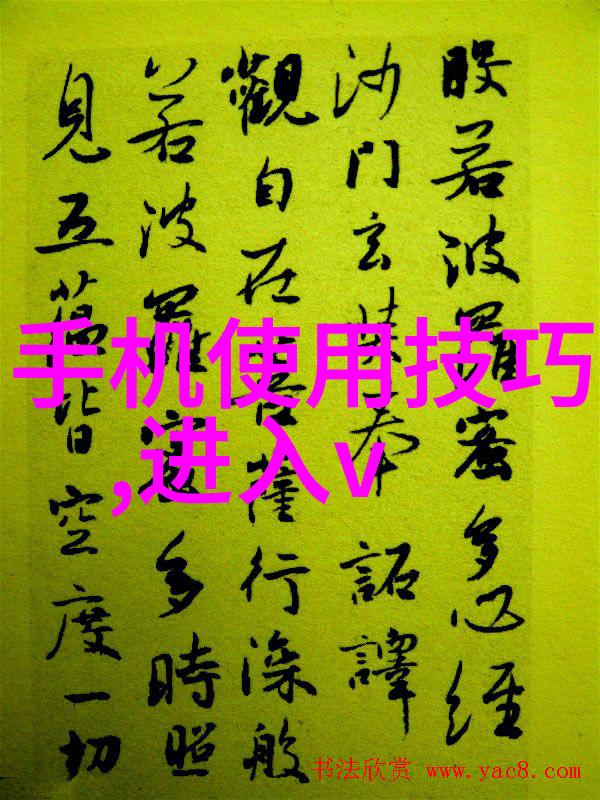 般若波羅蜜多心經
沙門玄奘奉 詔譯
觀自在菩薩行深般
若波羅蜜多時照
見五蘊皆空度一切
手机使用技巧
,进入v
书法欣赏 www.yac8.com